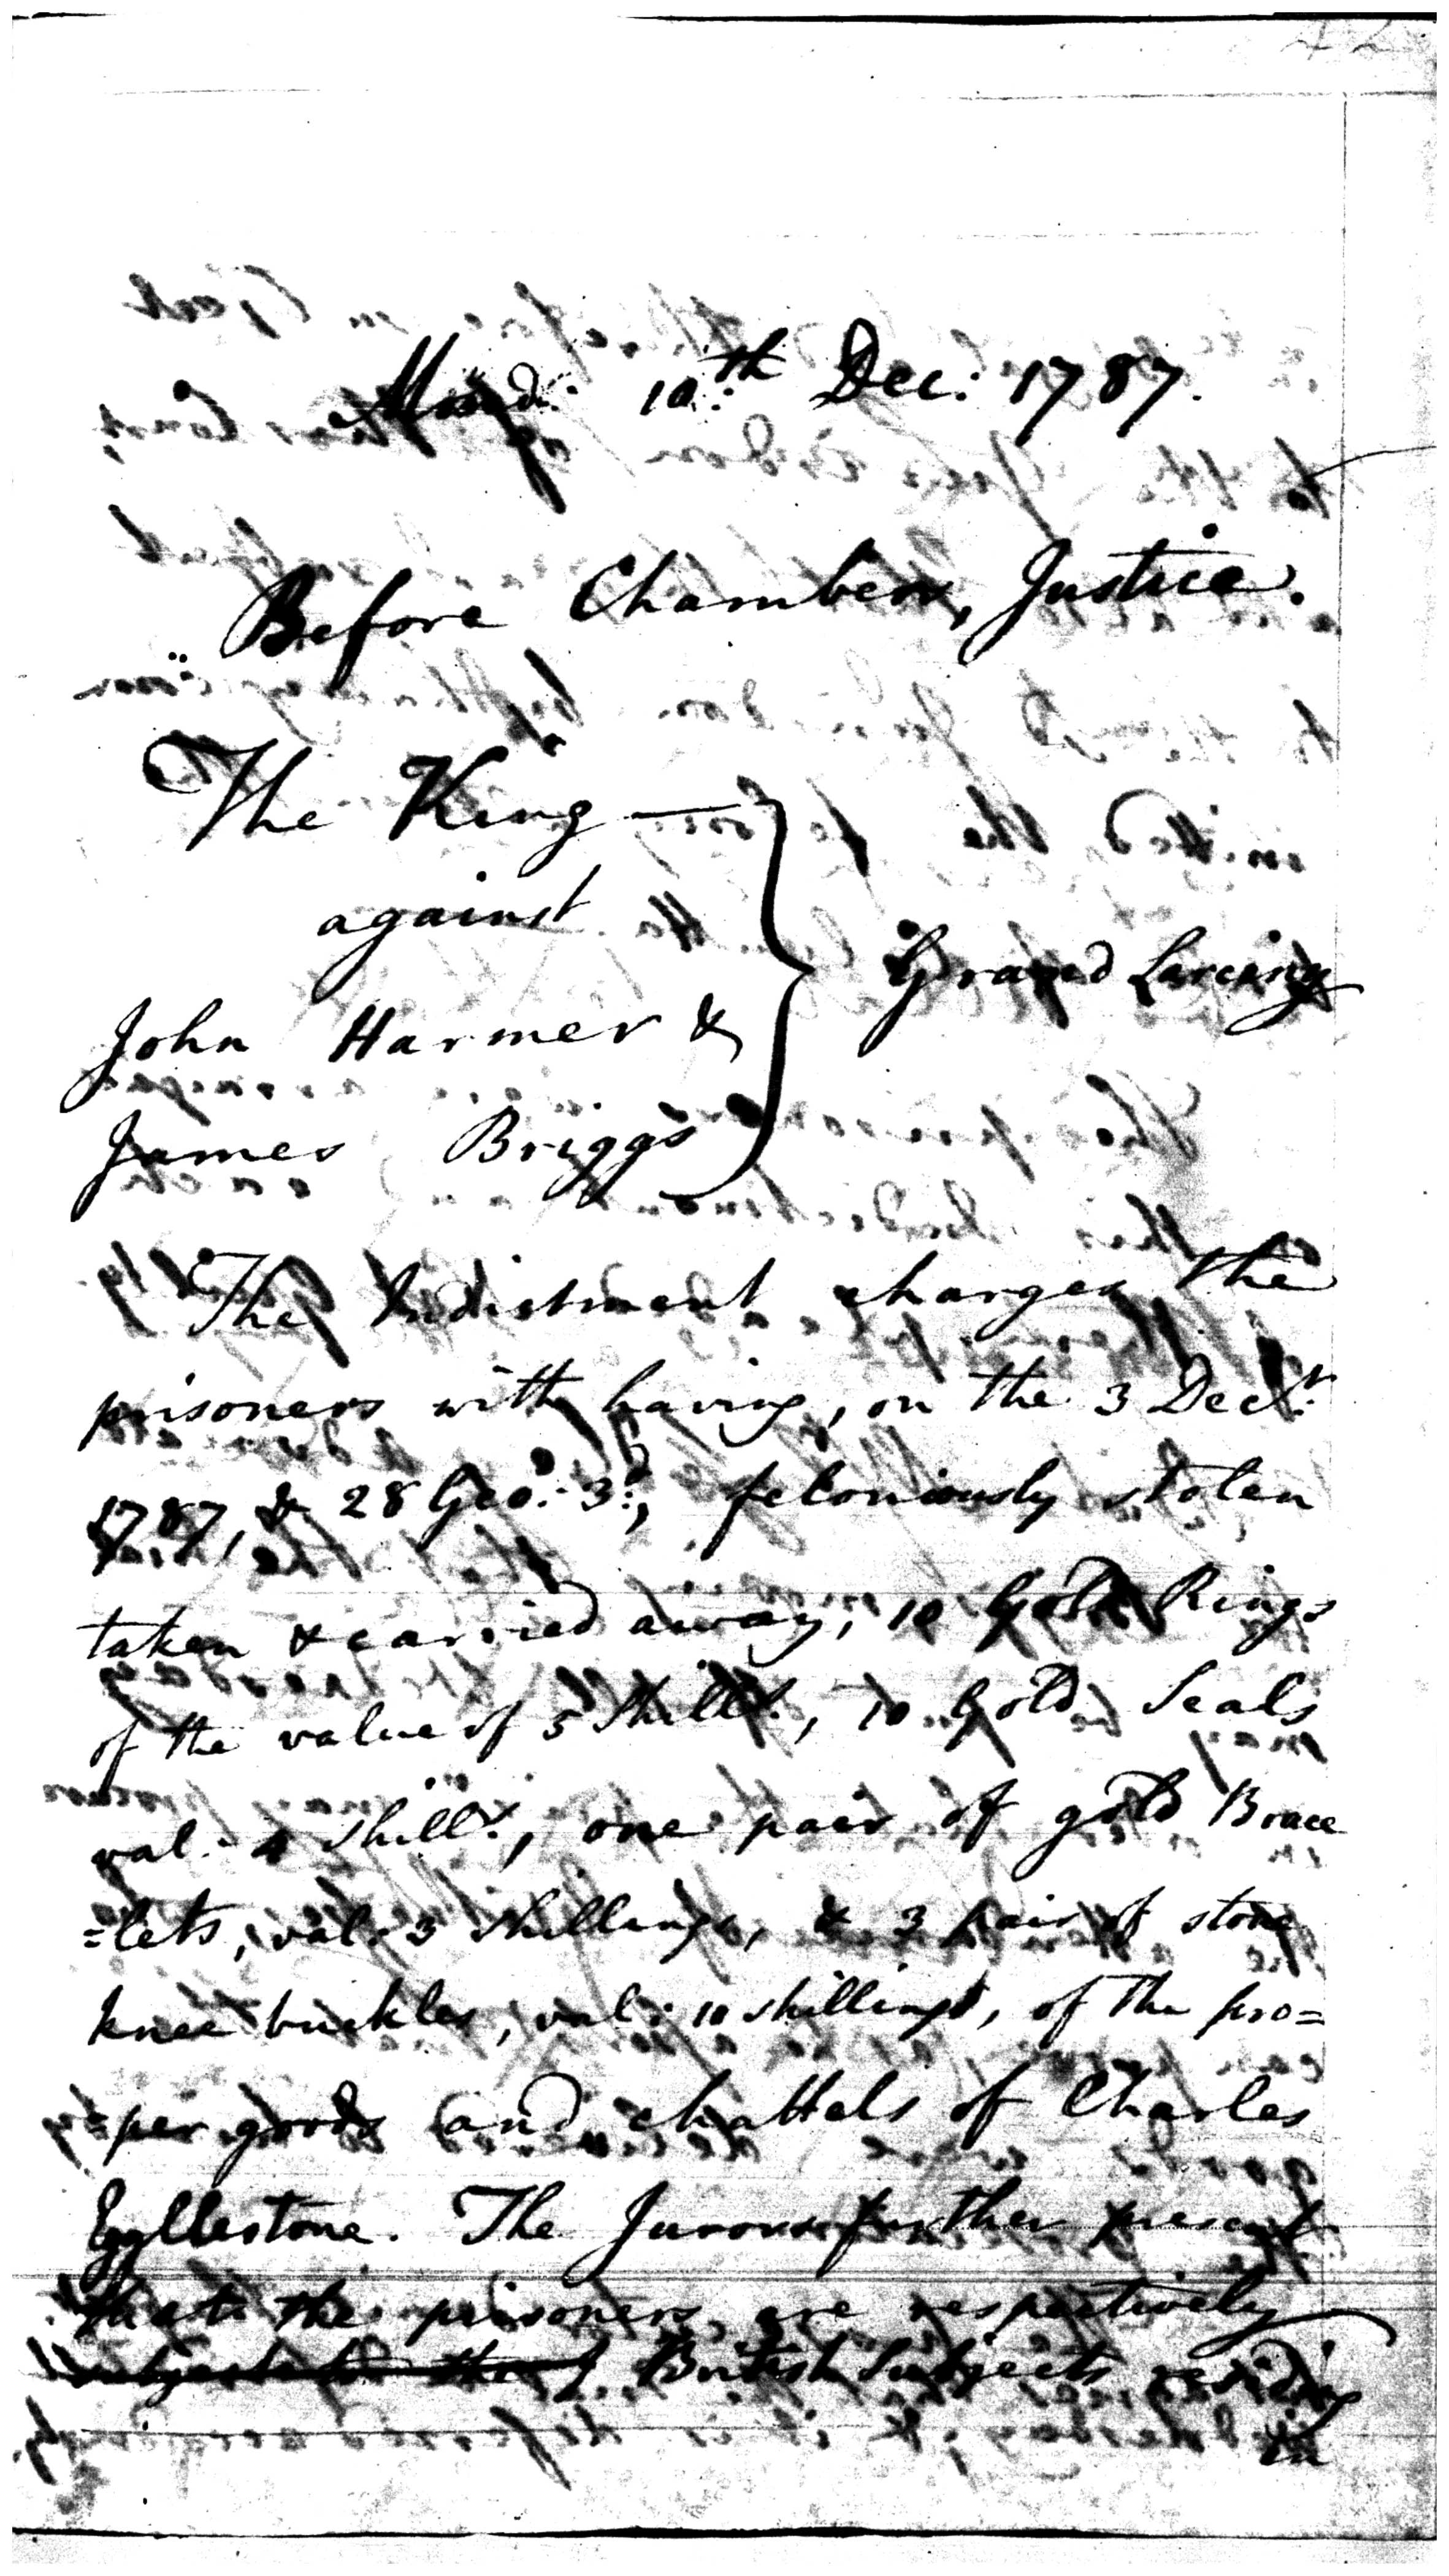 Mond: 10:th Dec: 1787.
Before Chambers, Justice.
The King —
against
John Harmer &
James Briggs
Grand Larceny
The Indictment charges the
prisoners with having, on the 3 Dec:r
1787, & 28 Geo: 3:d, feloniously stolen
taken & carried away, 10 Gold Rings
of the value of 5 Shill:s, 10 Gold Seals
val: 4 shill:s, one pair of gold Brace
=lets, val: 3 shillings, & 3 pair of stone
knee buckles, val: 10 shillings, of the pro=
=per goods and chattels of Charles
Egglestone. The Jurors further present
that the prisoners are respectively
British Subjects residing
in